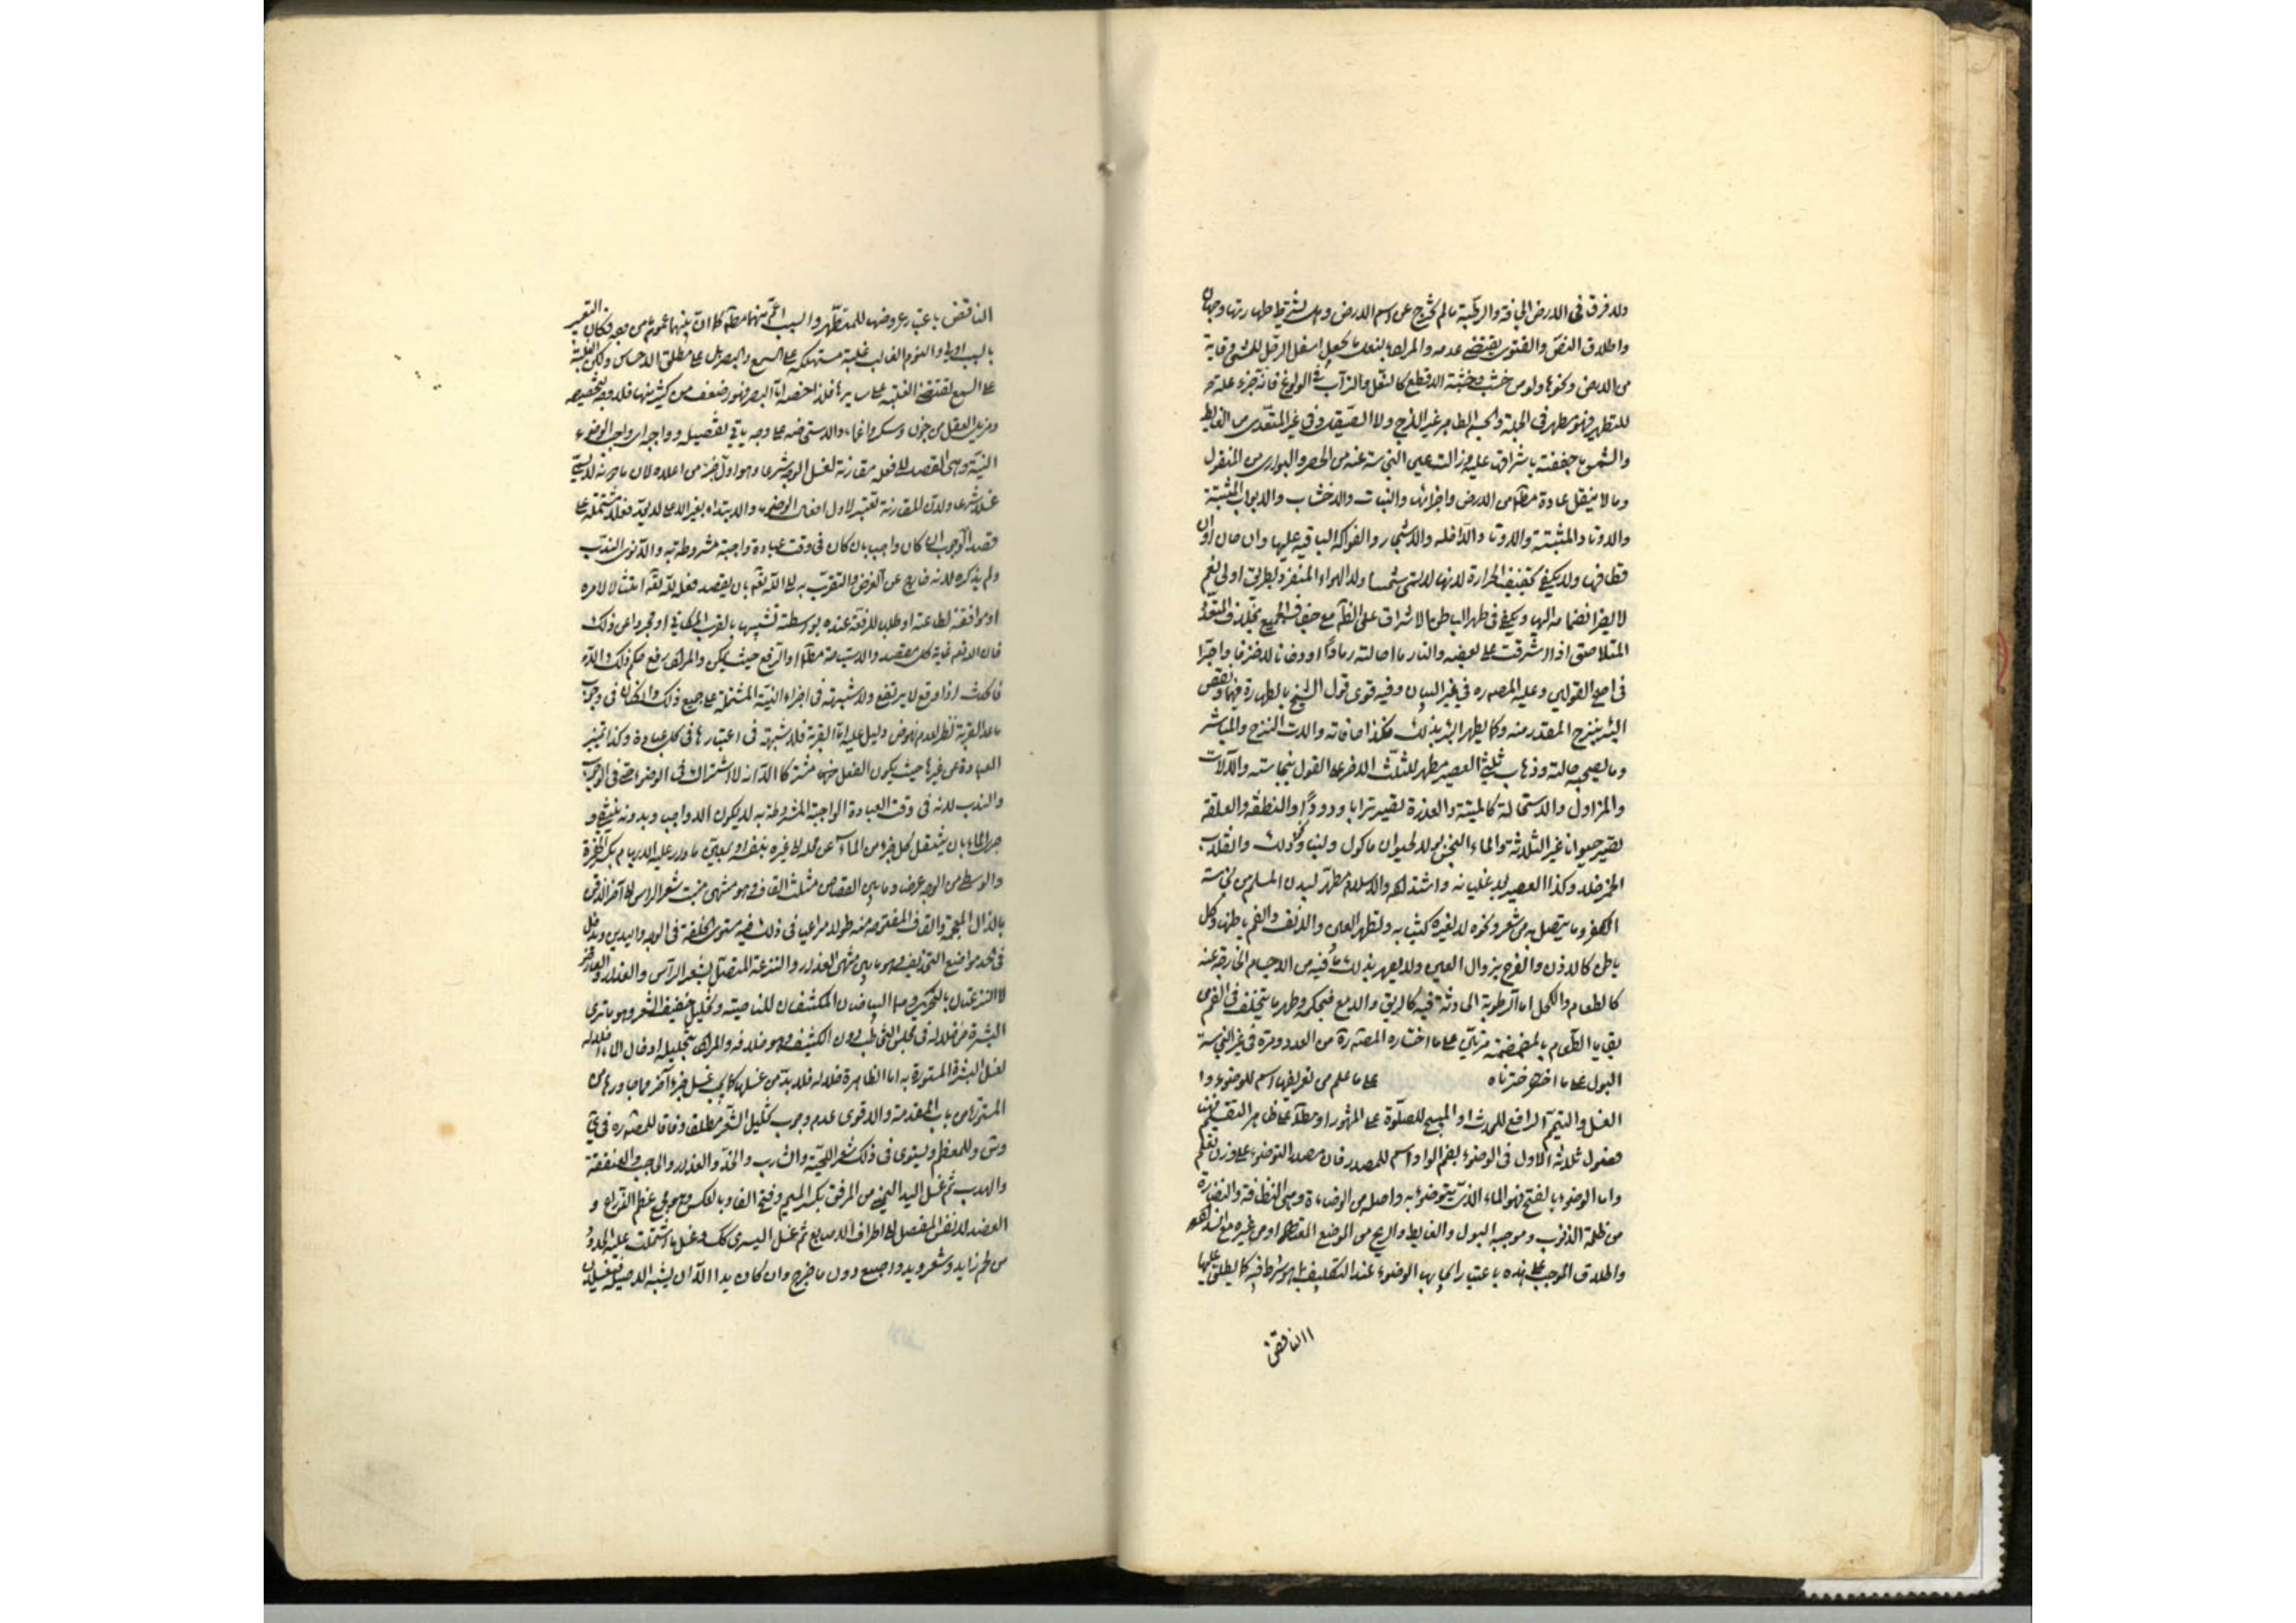 ولا فرق في الارض الجافة والرطبة ما لم تخرج عن اسم الارض وهل يشترط طهارتها وجهان
واطلاق النص والفتوى يقتضي عدمه والمراد بالنعل ما يجعل اسفل الرجل للمشي وقاية
من الارض ونحوها ولو من خشب وخشبة الاقطع كالنعل والتراب في الولوغ فانه جزء علة
للتطهير فهو مطهر في الجملة والجسم الطاهر غير اللزج ولا الصقيل في غير المتعدي من الغايط
والشمس ما جففته باشراقها عليه وزالت عين النجاسة عنه من الحصر والبواري من المنقول
وما لا ينقل عادة مطلقا من الارض واجزائها والنبات والاخشاب والابواب المثبتة
والاوتاد المثبتة والاوتاد الداخلة والاشجار والفواكه الباقية عليها وان حان اوان
قطافها ولا يكفي تجفيف الحرارة لانها لا تسمى شمسا ولا الهواء المنفرد بطريق اولى نعم
لا يضر انضمامه اليها ويكفي في طهر الباطن الاشراق على الظاهر مع جفاف الجميع بخلاف المتعدد
المتلاصق اذا اشرقت على بعضه والنار ما احالته رمادا او دخانا لا خزفا واجرا
في اصح القولين وعليه المص ره في غير البيان وفيه قوى قول الشيخ بالطهارة فيهما ونقص
البئر بنزح المقدر منه وكما يطهر البئر بذلك فكذا حافاته والات النزح والمباشر
وما يصحبه حالته وذهاب ثلثي العصير مطهر للثلث الاخر على القول بنجاسته والالات
والمزاول والاستحالة كالميتة والعذرة تصير ترابا ودودا والنطفة والعلقة
تصير حيوانا غير الثلاثة والماء النجس بولا لحيوان ماكول ولبنا ونحو ذلك وانقلاب
الخمر خلا وكذا العصير بعد غليانه واشتداده والاسلام مطهر لبدن المسلم من نجاسة
الكفر وما يتصل به من شعر ونحوه لا لغيره كثيابه وتطهر العين والانف والفم باطنها وكل
باطن كالاذن والفرج بزوال العين ولا يطهر بذلك ما فيه من الاجسام الخارجة عنه
كالطعام والكحل اما الرطوبة الحادثة فيه كالريق والدمع فبحكمه وطهر ما يتخلف في الفم من
بقايا الطعام بالمضمضة مرتين على ما اختاره المص ره من العدد ومرة في غير نجاسة
البول على ما اخترناه على ما علم من تعريفها اسم للوضوء و
الغسل والتيمم الرافع للحدث او المبيح للصلوة على المشهور او مطلقا على ظاهر التقسيم فهنا
فصول ثلاثة الاول في الوضوء بضم الواو اسم للمصدر فان مصدره التوضؤ على وزن تعلم
واما الوضوء بالفتح فهو الماء الذي يتوضؤ به واصله من الوضاءة وهي النظافة والنضارة
من ظلمة الذنوب وموجبه البول والغايط والريح من الموضع المعتاد او من غيره مع انسداده
واطلاق الموجب على هذه باعتبار ايجابها الوضوء عند التكليف بما هو شرط فيه كما يطلق عليها
الناقض
الناقض باعتبار عروضها للمتطهر والسبب اعم منهما مطلقا كما ان بينهما عموم من وجه فكان التعبير
بالسبب اولى والنوم الغالب غلبة مستهلكة على السمع والبصر بل على مطلق الاحساس ولكن الغلبة
على السمع تقتضي الغلبة على سايرها فلذا خصه اما البصر فهو اضعف من كثير منها فلا وجه لتخصيصه
ومزيل العقل من جنون وسكر واغماء والاستحاضة على وجه ياتي تفصيله وواجبه اى واجب الوضوء
النية وهي القصد الى فعله مقارنة لغسل الوجه شرعا وهو اول جزء من اعلاه لان ما دونه لا يسمى
غسلا شرعا ولان المقارنة تعتبر لاول افعال الوضوء والابتداء بغير الاعلى لا يعد فعلا مشتملة على
قصد الوجوب ان كان واجبا بان كان في وقت عبادة واجبة مشروطة به والا نوى الندب
ولم يذكره لانه خارج عن الغرض والتقرب به الى الله تعالى بان يقصد فعله لله تعالى امتثالا لامره
او موافقة لطاعته او طلبا للرفعة عنده بواسطته تشبيها بالقرب المكاني او مجردا عن ذلك
فانه تعالى غاية كل مقصد والاستباحة مطلقا او الرفع حيث يمكن والمراد رفع حكم ذلك والا
فالحدث اذا وقع لا يرتفع ولا شبهة في اجزاء النية المشتملة على جميع ذلك وان كان في وجوب
ما عدا القربة نظر لعدم نهوض دليل عليه اما القربة فلا شبهة في اعتبارها في كل عبادة وكذا تمييز
العبادة عن غيرها حيث يكون الفعل مشتركا الا انه لا اشتراك في الوضوء حتى في الوجوب
والندب لانه في وقت العبادة الواجبة المشروطة به لا يكون الا واجبا وبدونه ينتفي و
جرى الماء بان ينتقل كل جزء من الماء عن محله الى غيره بنفسه او بمعين ما دارت عليه الابهام بكسر الهمزة
والوسطى من الوجه عرضا وما بين القصاص مثلث القاف وهو منتهى منبت شعر الراس الى اخر الذقن
بالذال المعجمة والقاف المفتوحة منه طولا مراعيا في ذلك فيه مستوى الخلقة في الوجه واليدين ويدخل
في الحد مواضع التحذيف وهو ما بين منتهى العذار والنزعة المتصل بشعر الراس والعذار والعارض
لا النزعتان بالتحريك وهما البياضان المكتنفان للناصية وتخليل خفيف الشعر وهو ما ترى
البشرة من خلاله في مجلس التخاطب دون الكثيف وهو خلافه والمراد بتخليله ادخال الماء خلاله
لغسل البشرة المستورة به اما الظاهرة خلاله فلا بد من غسلها كما يجب غسل جزء اخر مما جاورها من
المستورة من باب المقدمة والاقوى عدم وجوب تخليل الشعر مطلقا وفاقا للمص ره في
وس وللمعظم ويستوى في ذلك شعر اللحية والشارب والخد والعذار والحاجب والعنفقة
والهدب ثم غسل اليد اليمنى من المرفق بكسر الميم وفتح الفاء وبالعكس وهو مجمع عظم الذراع و
العضد لا نفس المفصل الى اطراف الاصابع ثم غسل اليسرى كك وغسل ما اشتملت عليه الحدود
من لحم زايد وشعر ويد واصبع دون ما خرج وان كان يدا الا ان يشتبه الاصلية فيغسلان